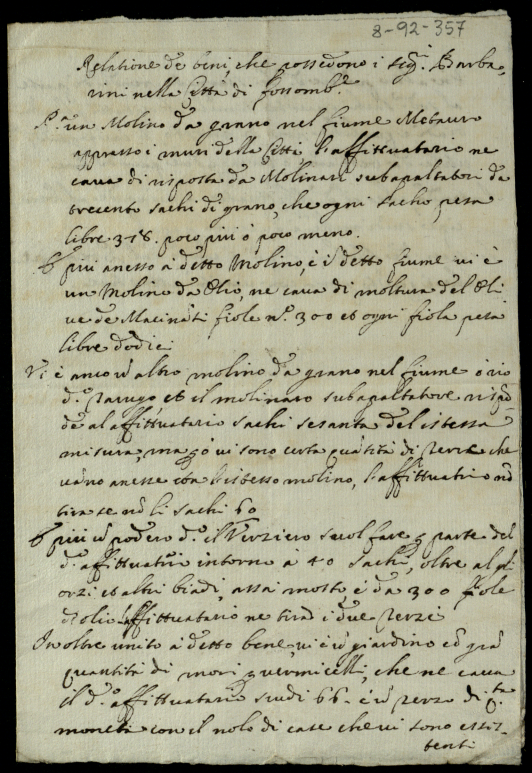 8-92-357
Relatione de beni, che possedono i sig.ri Barba,
rini nella Città di fossomb.e
P.a un Molino da grano nel fiume Metauro
appresso i muri della Città, l'affittuatario ne
cava di risposta da Molinari subapaltatori da
trecento sachi di grano, che ogni sacho pesa
libre 318. poco più ò poco meno.
E più anesso à detto Molino, è il detto fiume vi è
un Molino da Olio, ne cava di moltura del Oli
ve de Macinati fiole n.o 300 et ogni fiola pesa
libre dodici
Vi è anco un altro molino da grano nel fiume ò rio
d.o et il molinaro subapaltatore rispō
de al affittuatario sachi sesanta del istessa
misura, ma vi sono certa quantità di terre che
vāno anesse con l'istesso molino, l'affittuatrio nō
tira se nō li sachi 60
E più un podero d.o il Verziero suol fare p parte del
d.o affittuatrio intorno à 40 sachi, oltre al gli
orzi et altri biadi, assai mosto, è da 300 fiole
d'olio l'affittuatario ne tira i due terzi
In oltre unito à detto bene, vi è un giardino con grā
quantità di mori p vermicelli, che ne cava
il d.o affittuatario scudi 66 - è un terzo di q.ta
moneta con il nolo di case che vi sono essis-
tenti